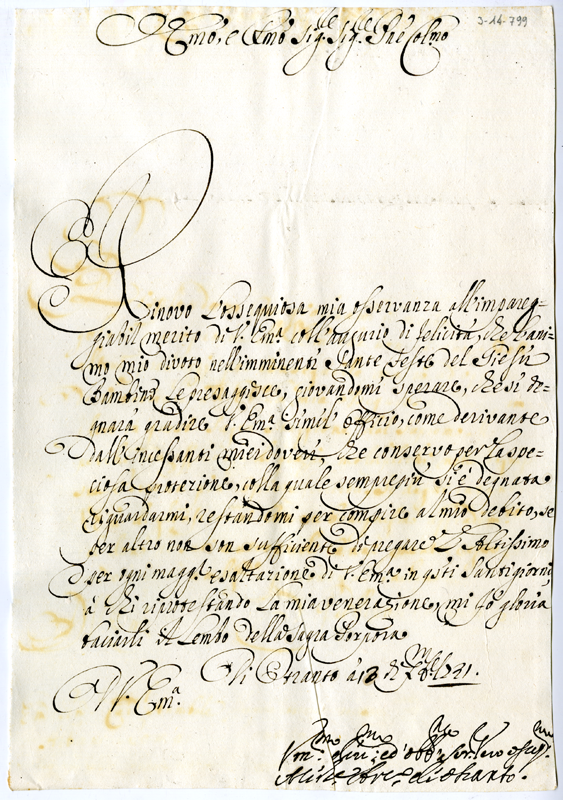 3-14-799
Emo, e Rmo Sig.re Sig.re Pne Colmo
Rinovo l'ossequiosa mia osservanza all'impareg-
giabil merito di V. Em.a coll'augurio di felicità, che l'ani-
mo mio divoto nell'imminenti Sante Feste del Giesù
Bambino Le presaggisce, giovandomi sperare, che si de-
gnarà gradire V. Em.a simil' officio, come derivante
dall'incessanti miei doveri, che conservo per la spe-
ciosa Protezione, colla quale sempre più si è degnata
riguardarmi, restandomi per compire al mio debito, se
per altro non son sufficiente di pregare L'Altissimo
per ogni magg.r esaltazione di V. Em.a in q.sti Santi giorni,
à chi riprotestando La mia venerazione, mi fò gloria
baciarli il Lembo della Sagra Porpora
Di V. Em.a
Otranto à 13 di Xbre 1721.
Um.mo div.mo ed obb.mo
Arcivescovo di Otranto.